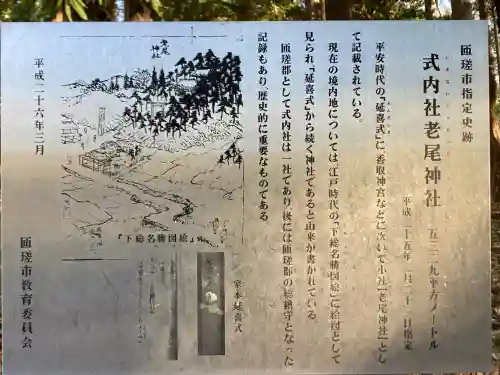 匝瑳市指定史跡
式内社老尾神社
五三二九平方メートル
平成二十五年二月二十二日指定
平安時代の『延喜式』に、香取神宮などに次いで小社「老尾神社」とし
て記載されている。
現在の境内地については、江戸時代の『下総名勝図絵』に絵図として
見られ、『延喜式』から続く神社であると由来が書かれている。
匝瑳郡として式内社は一社であり、後には匝瑳郡の総鎮守となった
記録もあり、歴史的に重要なものである。
老尾
神社
『下総名勝図絵』
家本延喜式
平成二十六年三月
匝瑳市教育委員会